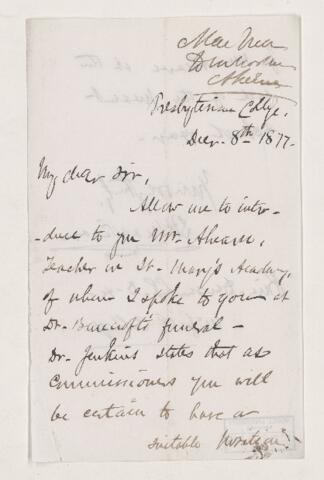 Presbyterian College,
Decr. 8th 1877.
My dear Sir,
Allow me to intro-
-duce to you Mr. Ahearn,
Teacher in St. Mary's Academy,
of whom I spoke to you at
Dr. Bancroft's funeral -
Dr. Jenkins states that as
Commissioners you will
be certain to have a
suitable